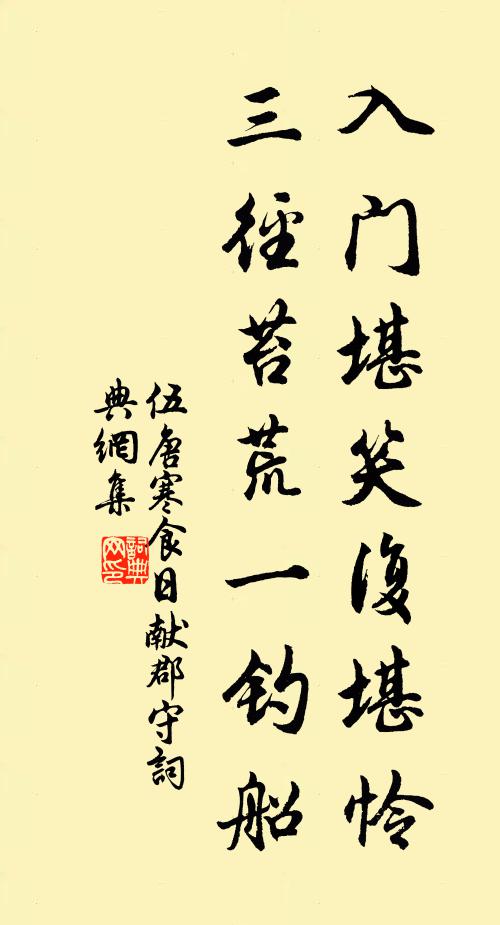 入门堪笑復堪怜
三徑苔荒一釣船
伍唐寒食日献郡守詞
典網集
詞典
网印